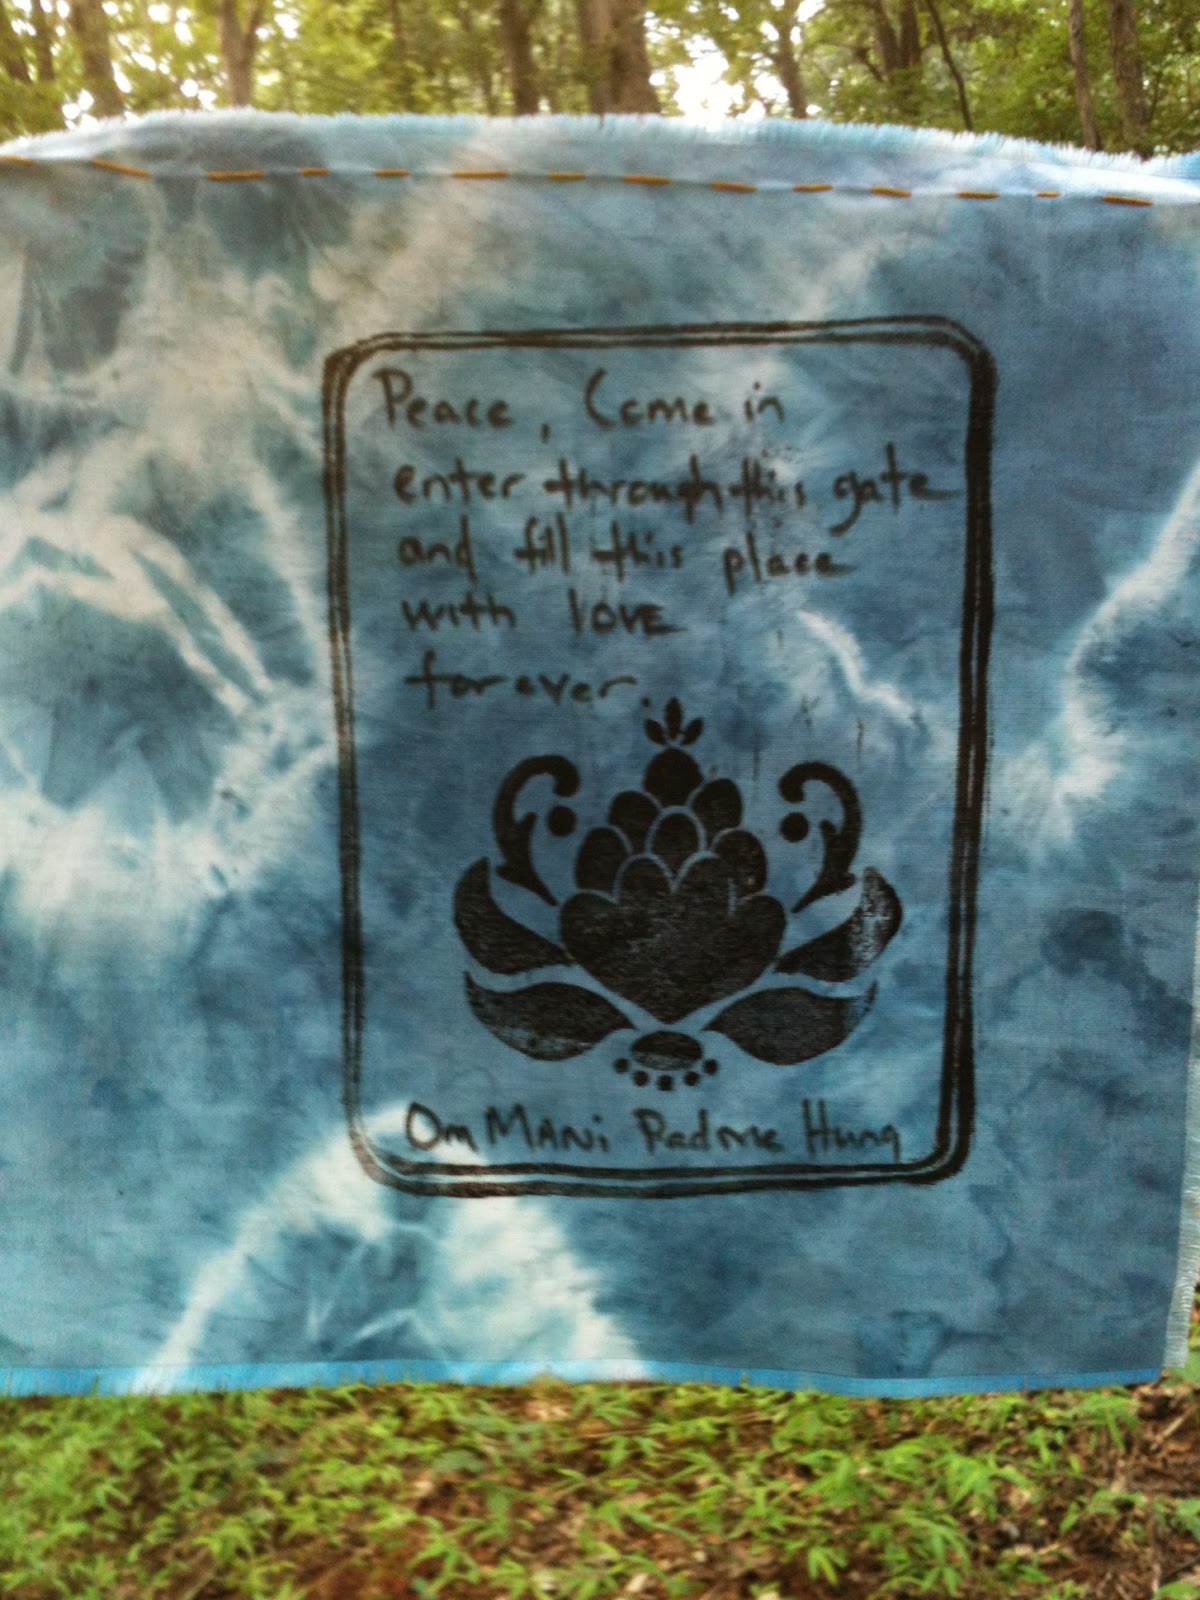 Peace, Come in
enter through this gate
and fill this place
with love
forever.
Om MANi Padme Hung